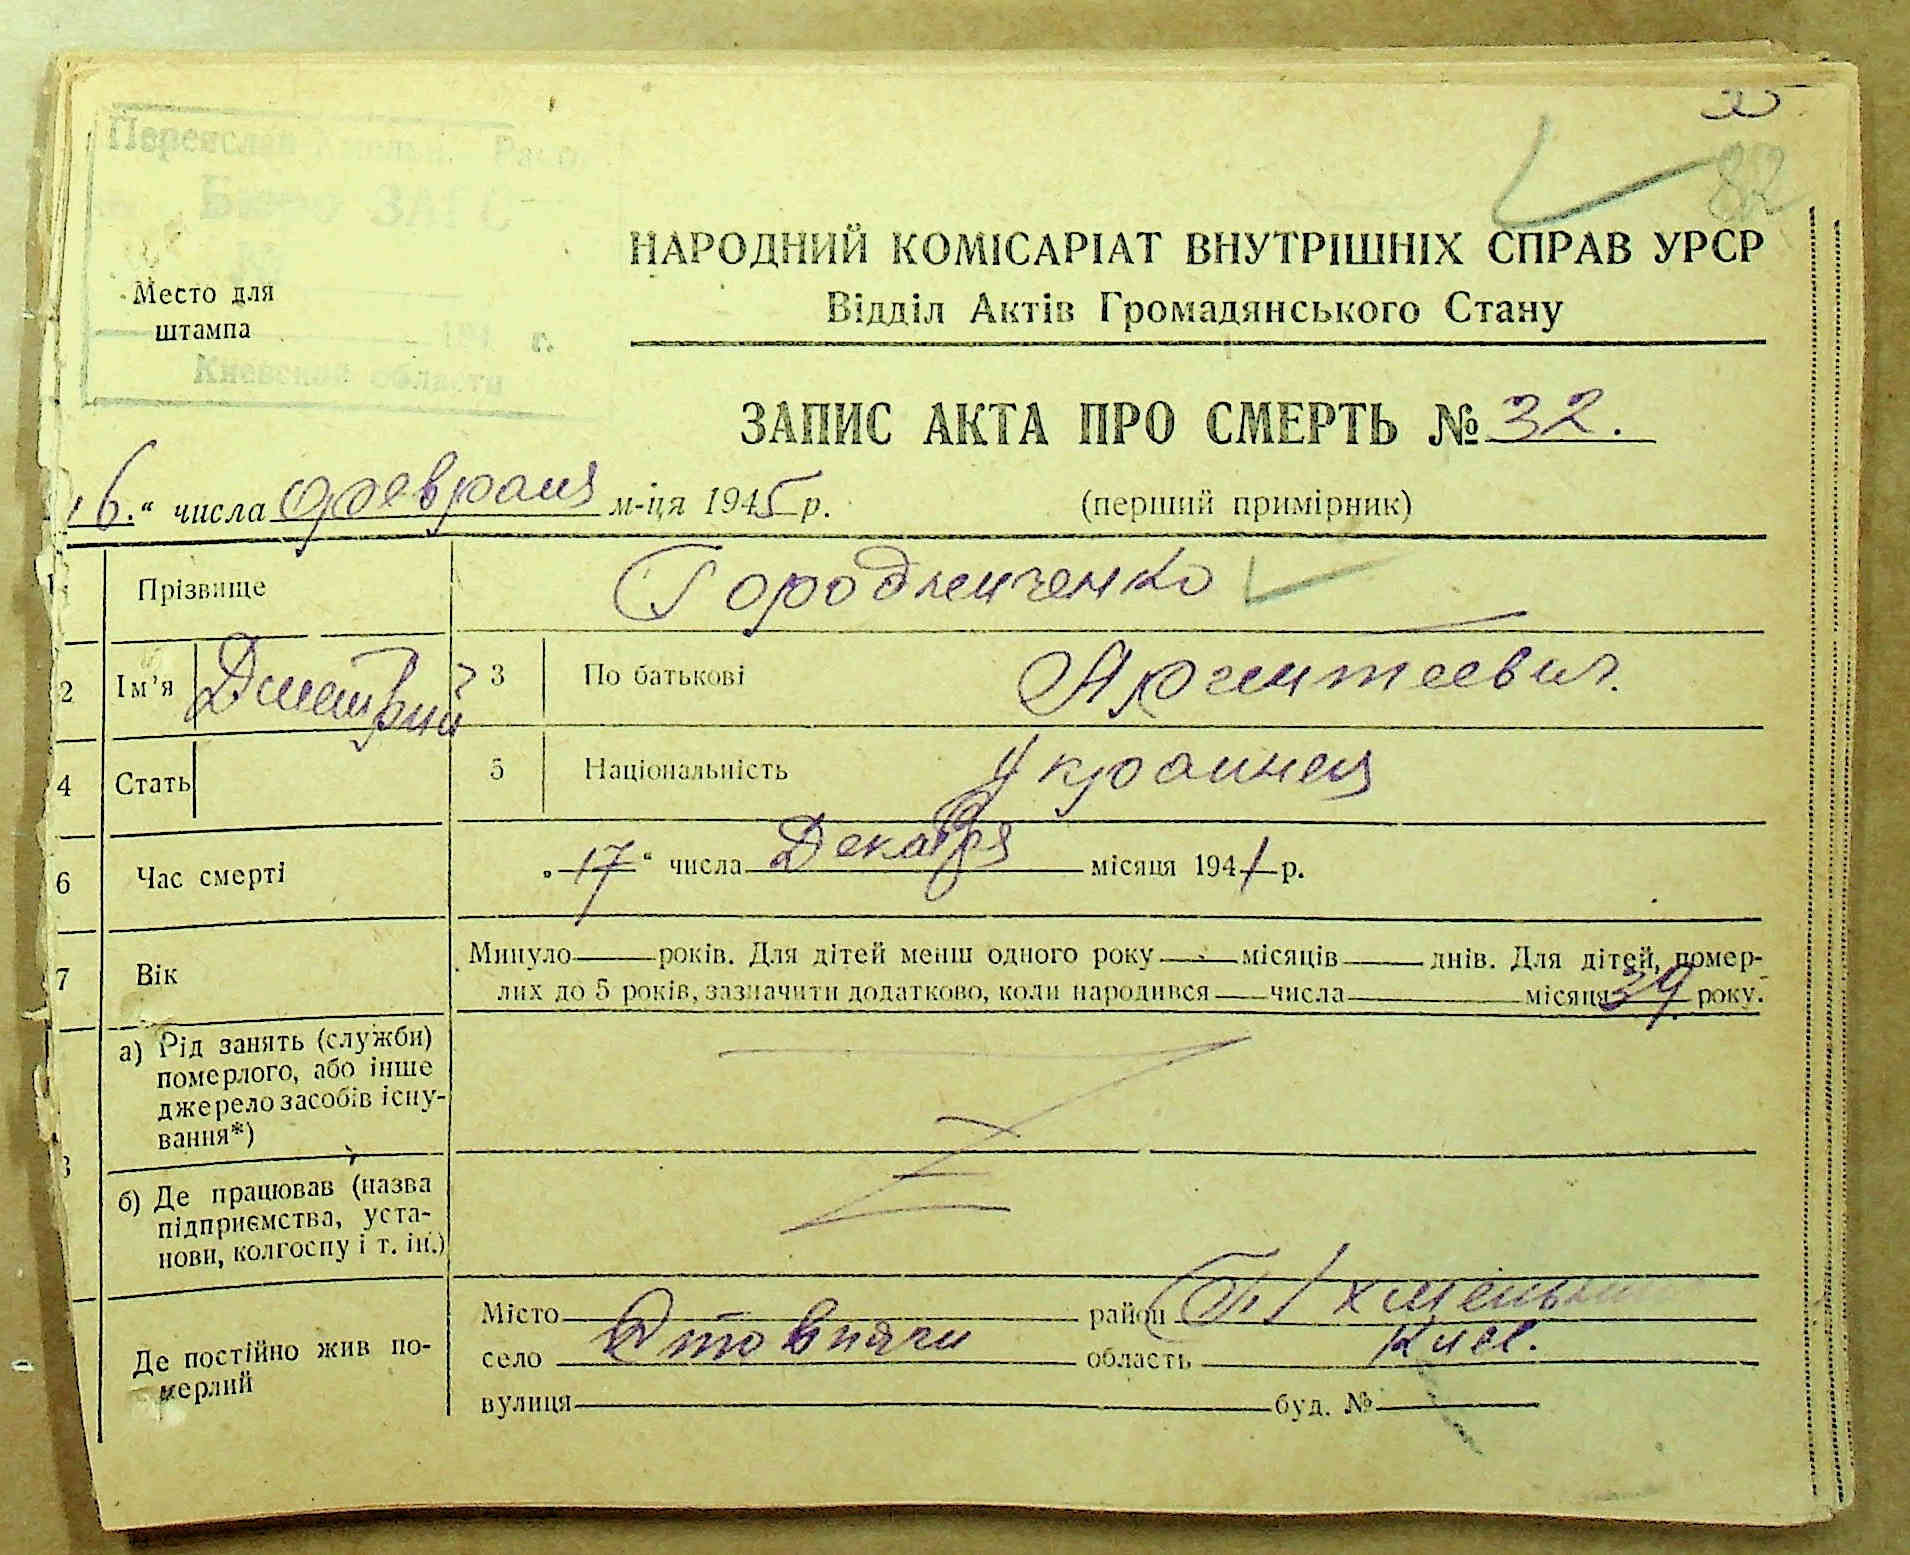 35
82
Переяслав Хмельн. Рай
Бюро ЗАГС
Место для
штампа
194 г.
Киевской области
НАРОДНИЙ КОМІСАРІАТ ВНУТРІШНІХ СПРАВ УРСР
Відділ Актів Громадянського Стану
ЗАПИС АКТА ПРО СМЕРТЬ № 32.
16. “ числа февраля м-ця 1945 р. (перший примірник)
Прізвище
2 Ім’я Дмитрий 3 По батькові
4 Стать 5 Національність Украинец
6 Час смерті „ 17 “ числа Декабря місяця 1941 р.
7 Вік Минуло років. Для дітей менш одного року місяців днів. Для дітей, помер-
лих до 5 років, зазначити додатково, коли народився числа місяця 39 року.
а) Рід занять (служби)
померлого, або інше
джерело засобів існу-
вання*)
б) Де працював (назва
підприємства, уста-
нови, колгоспу і т. ін.)
Де постійно жив по-
мерлий
Місто район П/Хмельн
село Стовпяги область Киев.
вулиця буд. №